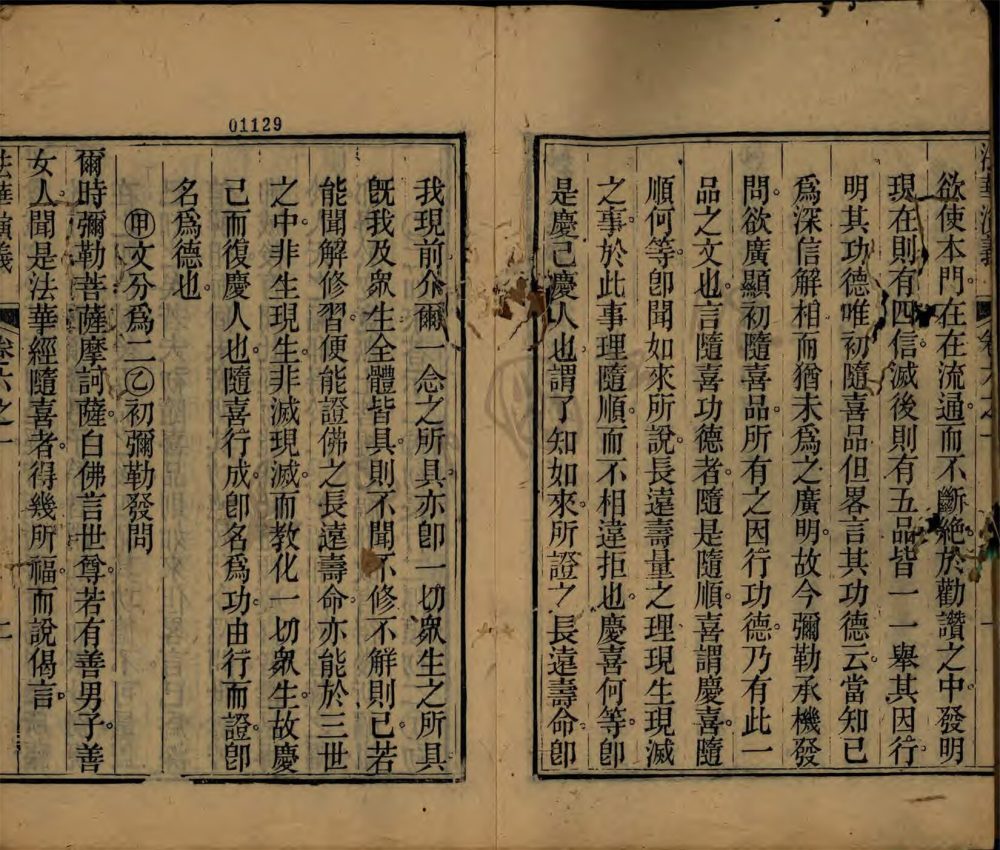 欲使本門在在流通而不斷絕於勸讚之中發明
現在則有四信滅後則有五品皆一一舉其因行
明其功德唯初隨喜品但畧言其功德云當知已
為深信解相而猶未為之廣明故今彌勒承機發
問欲廣顯初隨喜品所有之因行功德乃有此一
品之文也言隨喜功德者隨是隨順喜謂慶喜隨
順何等卽聞如來所說長遠壽量之理現生現滅
之事於此事理隨順而不相違拒也慶喜何等卽
是慶己慶人也謂了知如來所證之長遠壽命卽
01129
我現前介爾一念之所具亦卽一切眾生之所具
旣我及眾生全體皆具則不聞不修不解則已若
能聞解修習便能證佛之長遠壽命亦能於三世
之中非生現生非滅現滅而教化一切眾生故慶
己而復慶人也隨喜行成卽名為功由行而證卽
名為德也
㊙甲文分為二乙初彌勒發問
爾時彌勒菩薩摩訶薩白佛言世尊若有善男子善
女人聞是法華經隨喜者得幾所福而說偈言
法華演義 卷六之一 二